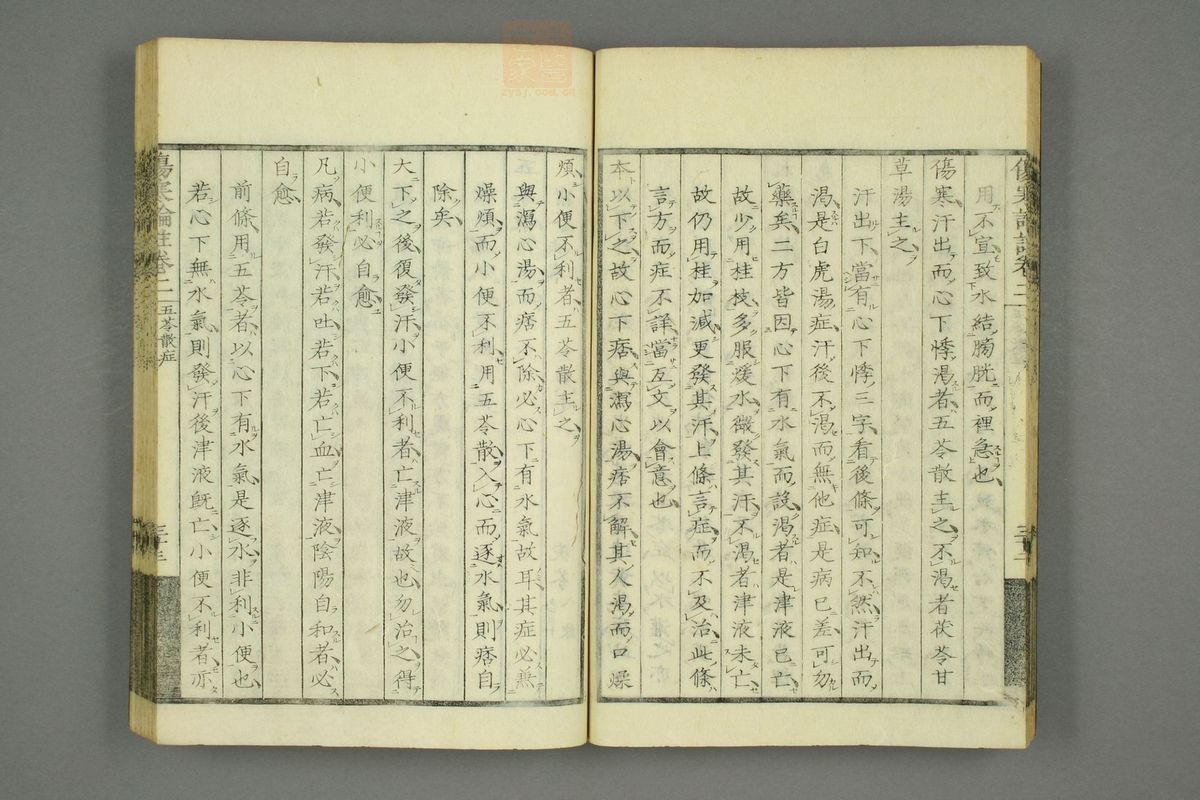 用不宣致水結膀胱而裡急也
傷寒汗出而心下悸渴者五苓散主之不渴者茯苓甘
草湯主之
汗出下當有心下悸三字看後條可知不然汗出而
渴是白虎湯症汗後不渴而無他症是病已差可勿
藥矣二方皆因心下有水氣而設渴者是津液已亡
故少用桂枝多服煖水微發其汗不渴者津液未亡
故仍用桂加減更發其汗上條言症而不及治此條
言方而症不詳當互文以會意也
本以下之故心下痞與瀉心湯痞不解其人渴而口燥
煩小便不利者五苓散主之
與瀉心湯而痞不除必心下有水氣故耳其症必無
燥煩而小便不利用五苓散入心而逐水氣則痞自
除矣
大下之後復發汗小便不利者亡津液故也勿治之得
小便利必自愈
凡病若發汗若吐若下若亡血亡津液陰陽自和者必
自愈
前條用五苓者以心下有水氣是逐水非利小便也
若心下無水氣則發汗後津液既亡小便不利者亦
傷寒論註卷二 五苓散症
醫家
zysj.com.cn